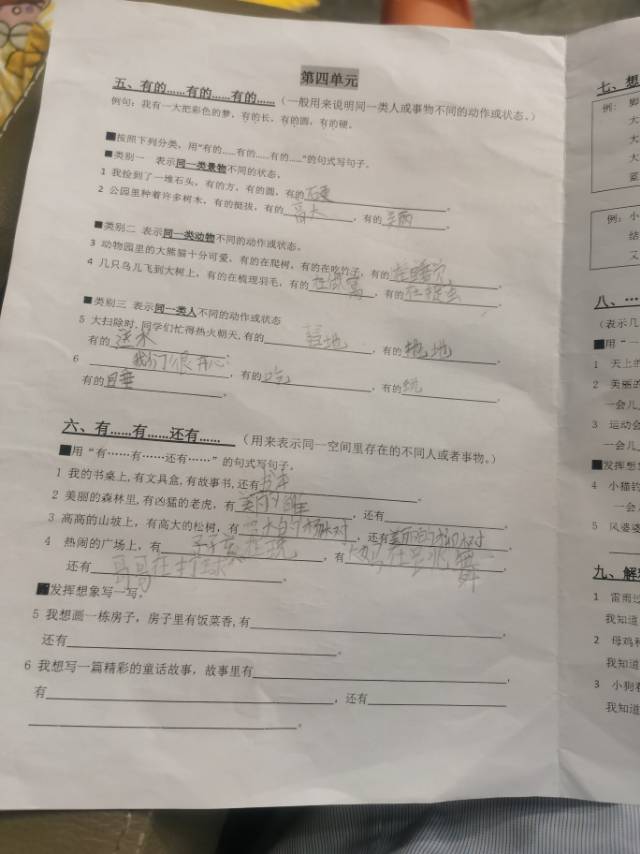 第四单元
五、有的……有的……有的……（一般用来说明同一类人或事物不同的动作或状态。）
例句：我有一大把彩色的梦，有的长，有的圆，有的硬。
■按照下列分类，用“有的……有的……有的……”的句式写句子。
■类别一 表示同一类景物不同的状态。
1 我捡到了一堆石头，有的方，有的圆，有的。
2 公园里种着许多树木，有的挺拔，有的高大，有的。
■类别二 表示同一类动物不同的动作或状态。
3 动物园里的大熊猫十分可爱，有的在爬树，有的在吃竹子，有的在睡觉。
4 几只鸟儿飞到大树上，有的在梳理羽毛，有的在做窝，有的在捉虫。
■类别三 表示同一类人不同的动作或状态
5 大扫除时，同学们忙得热火朝天，有的扫地，有的拖地，
有的送水。
6 我们很开心：，有的吃，有的玩，
有的睡。
六、有……有……还有……（用来表示同一空间里存在的不同人或者事物。）
■用“有……有……还有……”的句式写句子。
1 我的书桌上，有文具盒，有故事书，还有书本。
2 美丽的森林里，有凶猛的老虎，有美的，还有。
3 高高的山坡上，有高大的松树，有的杨树，还有美丽的树。
4 热闹的广场上，有子在玩，有妈在跳舞，
还有哥哥在打球。
■发挥想象写一写。
5 我想画一栋房子，房子里有饭菜香，有，
还有。
6 我想写一篇精彩的童话故事，故事里有，
有，还有
。
七、想
例：如
大
大
大
蓝
例：小
结
又
八、…
（表示几
■用“一
1 天上的
2 美丽的
一会儿
3 运动会
一会儿
■发挥想
4 小猫钓
一会儿
5 风婆婆
九、解释
1 雷雨过
我知道
2 母鸡和
我知道
3 小狗看
我知道